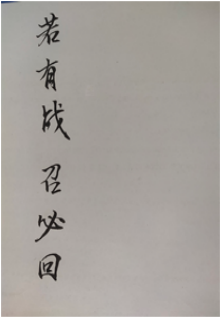 若有战 召必回